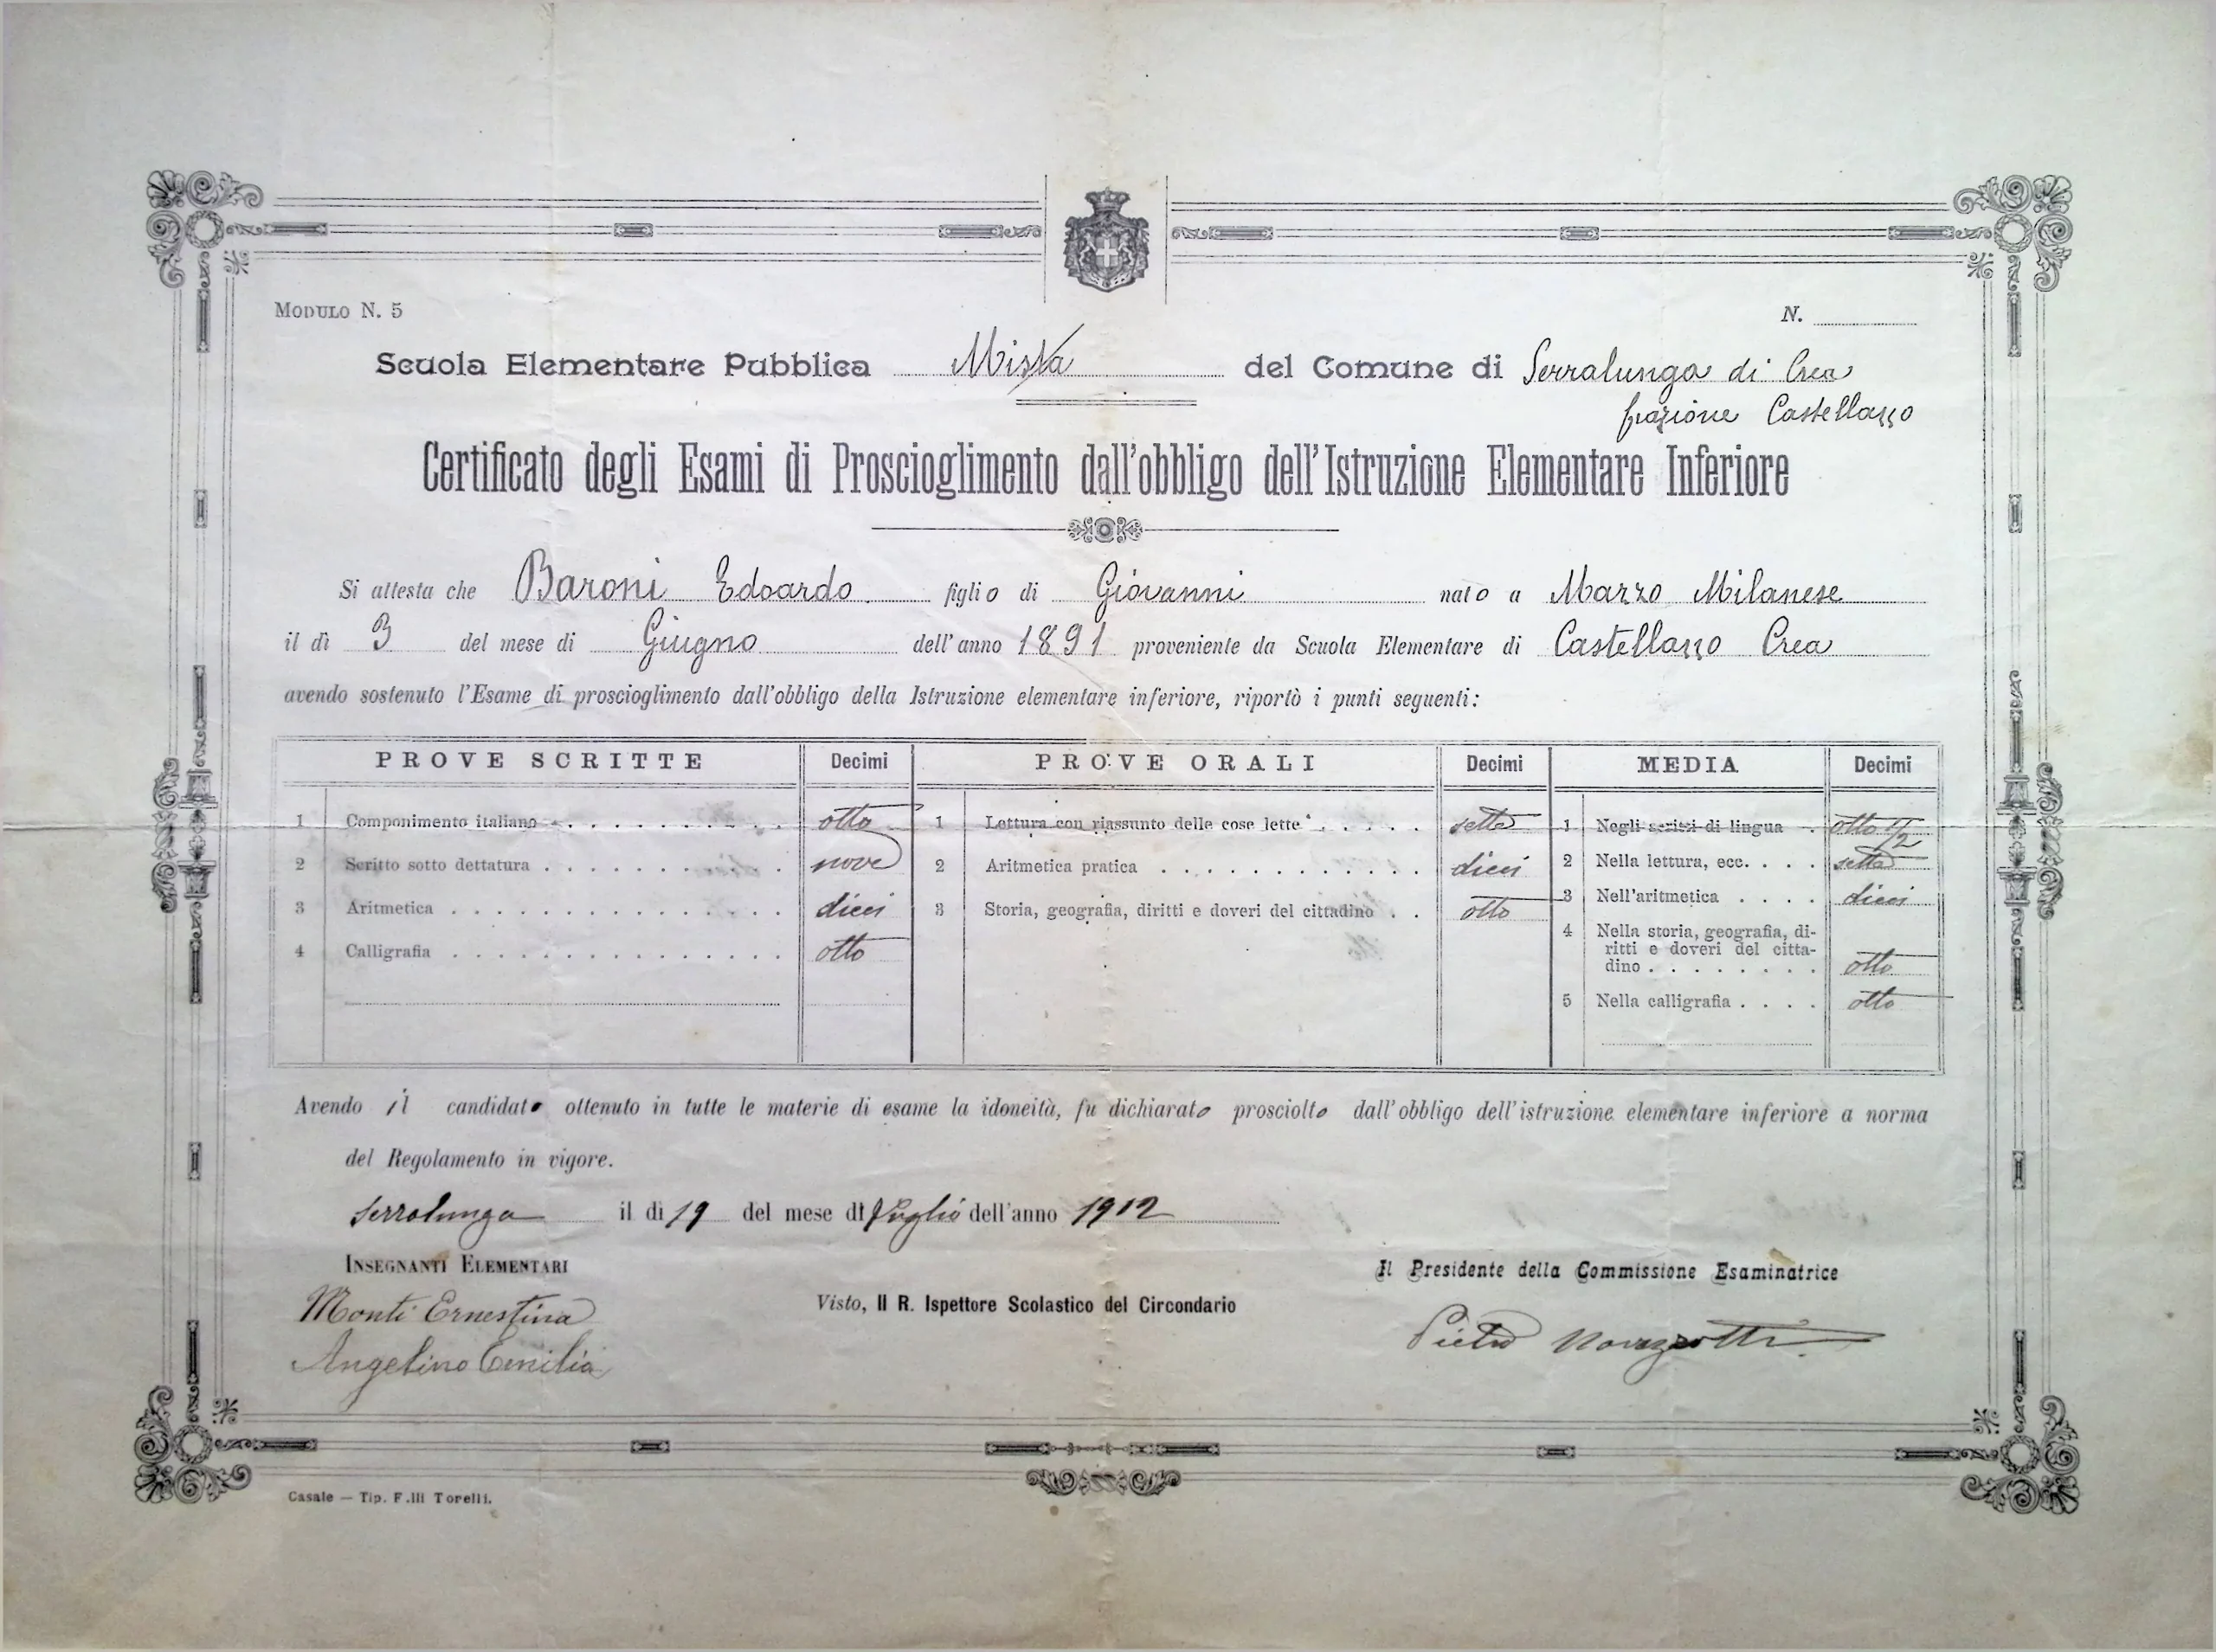 MODULO N. 5
N.
Scuola Elementare Pubblica Mista del Comune di Serralunga di Crea
frazione Castellazzo
Certificato degli Esami di Proscioglimento dall'obbligo dell'Istruzione Elementare Inferiore
Si attesta che Baroni Edoardo figlio di Giovanni nato a Marzo Milanese
il dì 3 del mese di Giugno dell'anno 1891 proveniente da Scuola Elementare di Castellazzo Crea
avendo sostenuto l'Esame di proscioglimento dall'obbligo della Istruzione elementare inferiore, riportò i punti seguenti:
PROVE SCRITTE Decimi
1 Componimento italiano otto
2 Scritto sotto dettatura nove
3 Aritmetica dieci
4 Calligrafia otto
PROVE ORALI Decimi
1 Lettura con riassunto delle cose lette sette
2 Aritmetica pratica dieci
3 Storia, geografia, diritti e doveri del cittadino otto
MEDIA Decimi
1 Negli scritti di lingua otto 1/2
2 Nella lettura, ecc. sette
3 Nell'aritmetica dieci
4 Nella storia, geografia, di-
ritti e doveri del citta-
dino otto
5 Nella calligrafia otto
Avendo il candidato ottenuto in tutte le materie di esame la idoneità, fu dichiarato prosciolto dall'obbligo dell'istruzione elementare inferiore a norma
del Regolamento in vigore.
Serralunga il dì 19 del mese di Luglio dell'anno 1912
INSEGNANTI ELEMENTARI
Il Presidente della Commissione Esaminatrice
Monti Ernestina
Visto, Il R. Ispettore Scolastico del Circondario
Angelino Emilia
Pietro
Casale — Tip. F.lli Torelli.